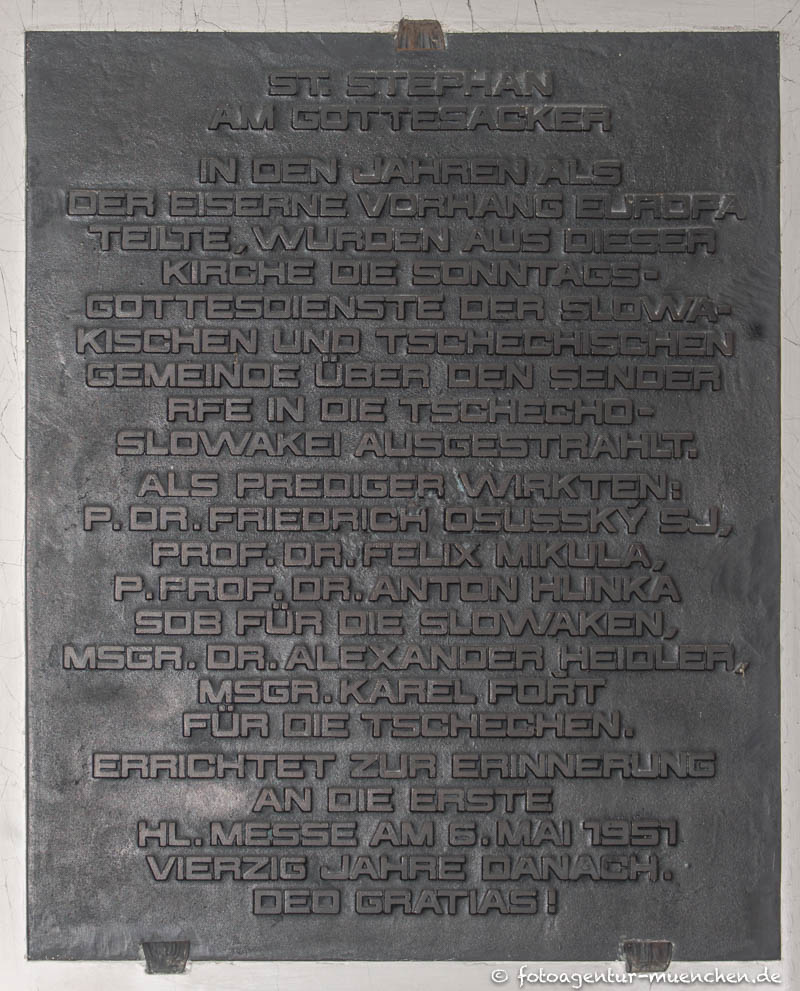 ST. STEPHAN
AM GOTTESACKER
IN DEN JAHREN ALS
DER EISERNE VORHANG EUROPA
TEILTE, WURDEN AUS DIESER
KIRCHE DIE SONNTAGS-
GOTTESDIENSTE DER SLOWA-
KISCHEN UND TSCHECHISCHEN
GEMEINDE ÜBER DEN SENDER
RFE IN DIE TSCHECHO-
SLOWAKEI AUSGESTRAHLT.
ALS PREDIGER WIRKTEN:
P. DR. FRIEDRICH OSUSSKY SJ,
PROF. DR. FELIX MIKULA,
P. PROF. DR. ANTON HLINKA
SDB FÜR DIE SLOWAKEN,
MSGR. DR. ALEXANDER HEIDLER,
MSGR. KAREL FOŘT
FÜR DIE TSCHECHEN.
ERRICHTET ZUR ERINNERUNG
AN DIE ERSTE
HL. MESSE AM 6. MAI 1951
VIERZIG JAHRE DANACH.
DEO GRATIAS!
© fotoagentur-muenchen.de